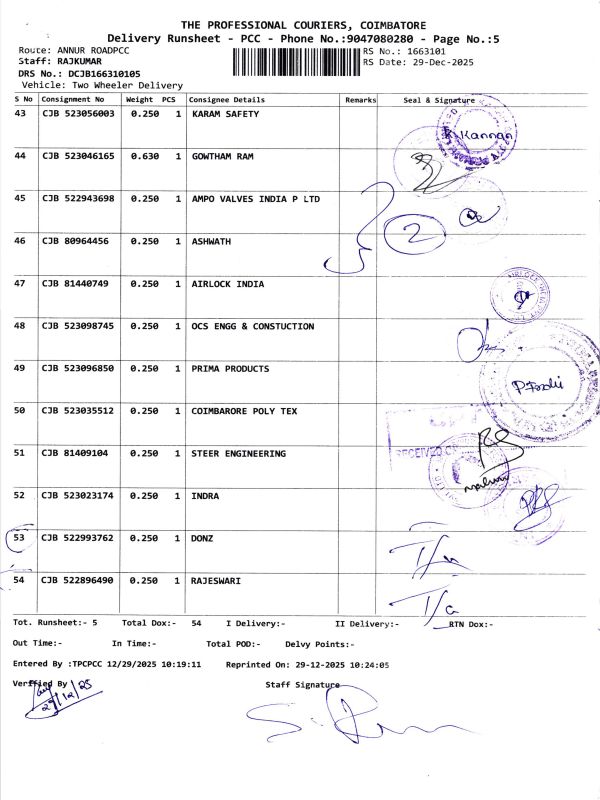 THE PROFESSIONAL COURIERS, COIMBATORE
Delivery Runsheet - PCC - Phone No.:9047080280 - Page No.:5
Route: ANNUR ROADPCC RS No.: 1663101
Staff: RAJKUMAR RS Date: 29-Dec-2025
DRS No.: DCJB166310105
Vehicle: Two Wheeler Delivery
S No Consignment No Weight PCS Consignee Details Remarks Seal & Signature
43 CJB 523056003 0.250 1 KARAM SAFETY
R. Kannan
44 CJB 523046165 0.630 1 GOWTHAM RAM
45 CJB 522943698 0.250 1 AMPO VALVES INDIA P LTD
2
46 CJB 80964456 0.250 1 ASHWATH
47 CJB 81440749 0.250 1 AIRLOCK INDIA
48 CJB 523098745 0.250 1 OCS ENGG & CONSTUCTION
49 CJB 523096850 0.250 1 PRIMA PRODUCTS
50 CJB 523035512 0.250 1 COIMBARORE POLY TEX
51 CJB 81409104 0.250 1 STEER ENGINEERING
RECEIVED
52 CJB 523023174 0.250 1 INDRA
53 CJB 522993762 0.250 1 DONZ
54 CJB 522896490 0.250 1 RAJESWARI
Tot. Runsheet:- 5 Total Dox:- 54 I Delivery:- II Delivery:- RTN Dox:-
Out Time:- In Time:- Total POD:- Delvy Points:-
Entered By :TPCPCC 12/29/2025 10:19:11 Reprinted On: 29-12-2025 10:24:05
Verified By Staff Signature
29/12/25